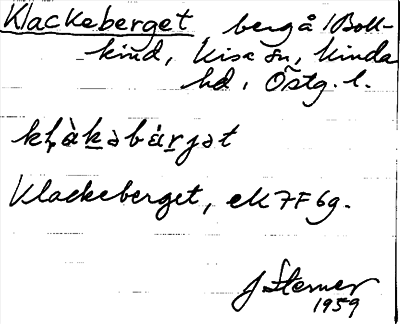 Klackeberget berg å /Boll-
kind, Kisa sn, Kinda
hd, Östg. l.
kḷàkəbærjət
Klackeberget, ek 7F6g.
J Sterner
1959